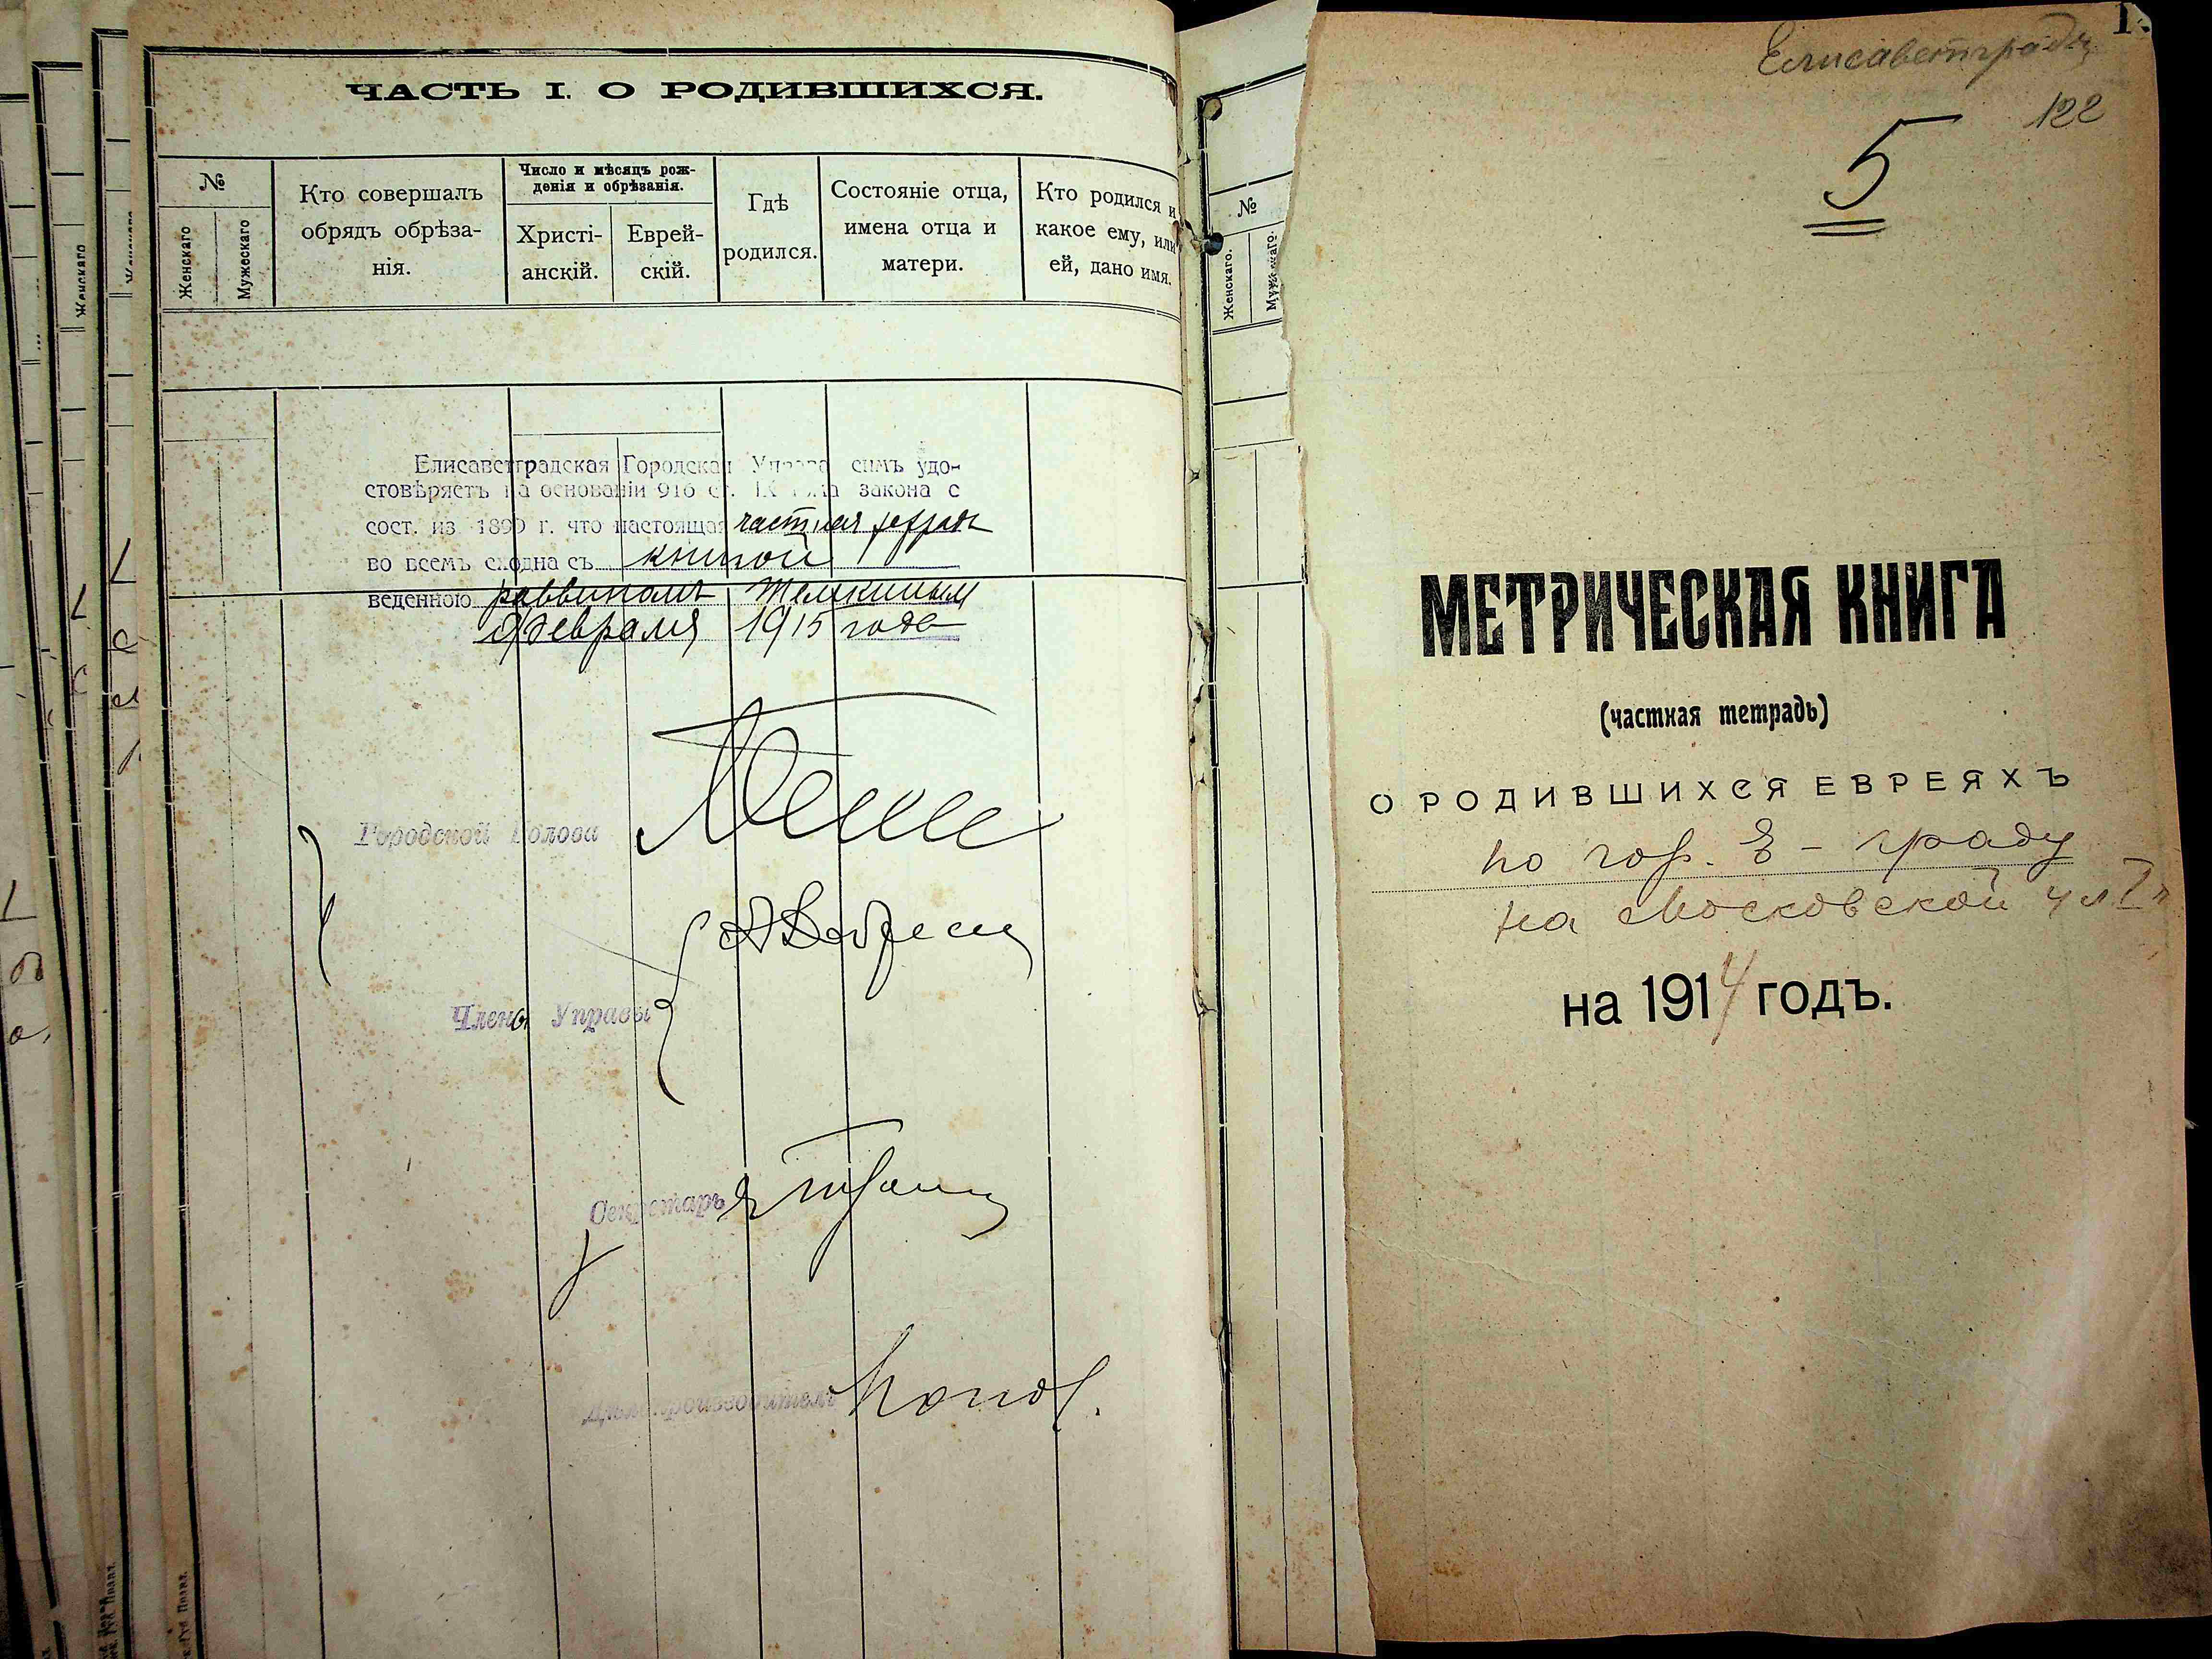 ЧАСТЬ I. О РОДИВШИХСЯ.
№
Женскаго
Мужескаго
Кто совершалъ
обрядъ обрѣза-
нія.
Число и мѣсяцъ рож-
денія и обрѣзанія.
Христі-
анскій.
Еврей-
скій.
Гдѣ
родился.
Состояніе отца,
имена отца и
матери.
Кто родился и
какое ему, или
ей, дано имя.
Елисаветградская Городская Управа симъ удо-
стовѣряетъ на основаніи 916 ст. IX тома закона о
сост. из. 1899 г. что настоящая частная тетрадь
во всемъ сходна съ книгой
веденною раввиномъ
Февраля 1915 года
Городской Голова
Члены Управы
Секретарь
Дѣлопроизводитель Попов.
№
Женскаго.
Мужескаго.
Елисаветградъ
122
5
МЕТРИЧЕСКАЯ КНИГА
(частная тетрадь)
О РОДИВШИХСЯ ЕВРЕЯХЪ
по гор. Е-граду
на Московской ул
на 1914 годъ.